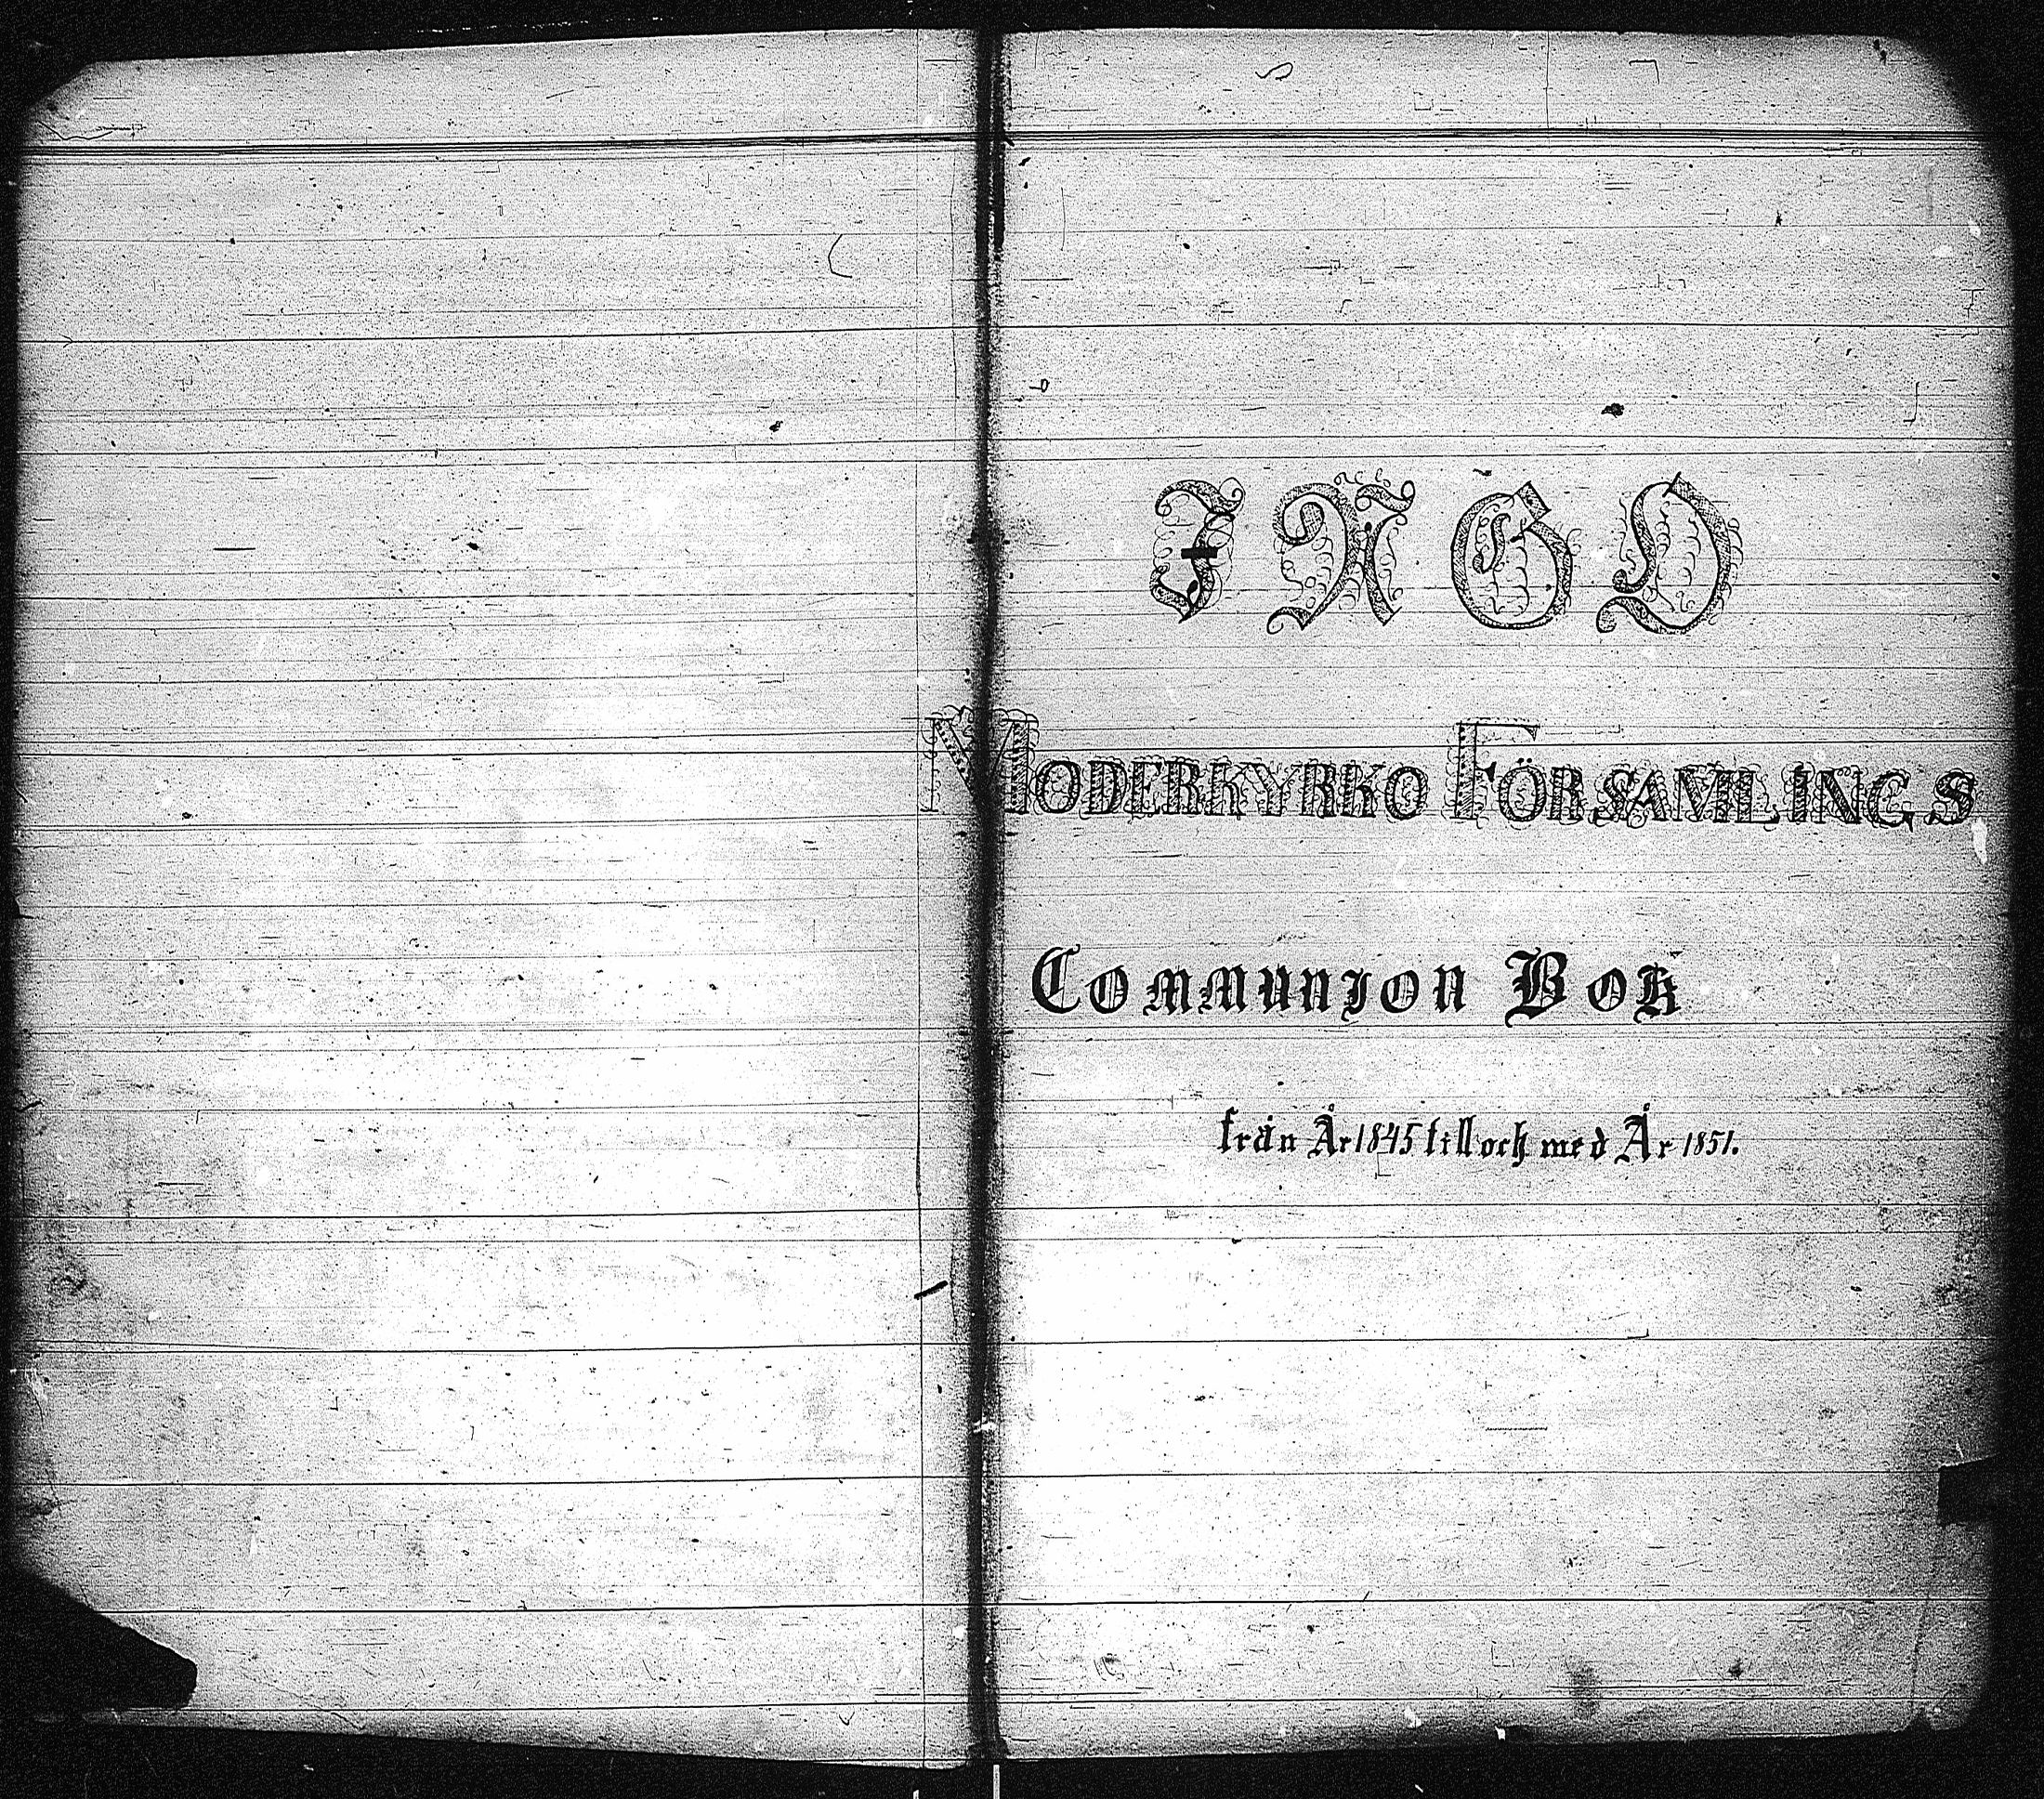 I N G D
MODERKYRKO FÖRSAMLINGS
Communion Bok
från År 1845 till och med År 1851.